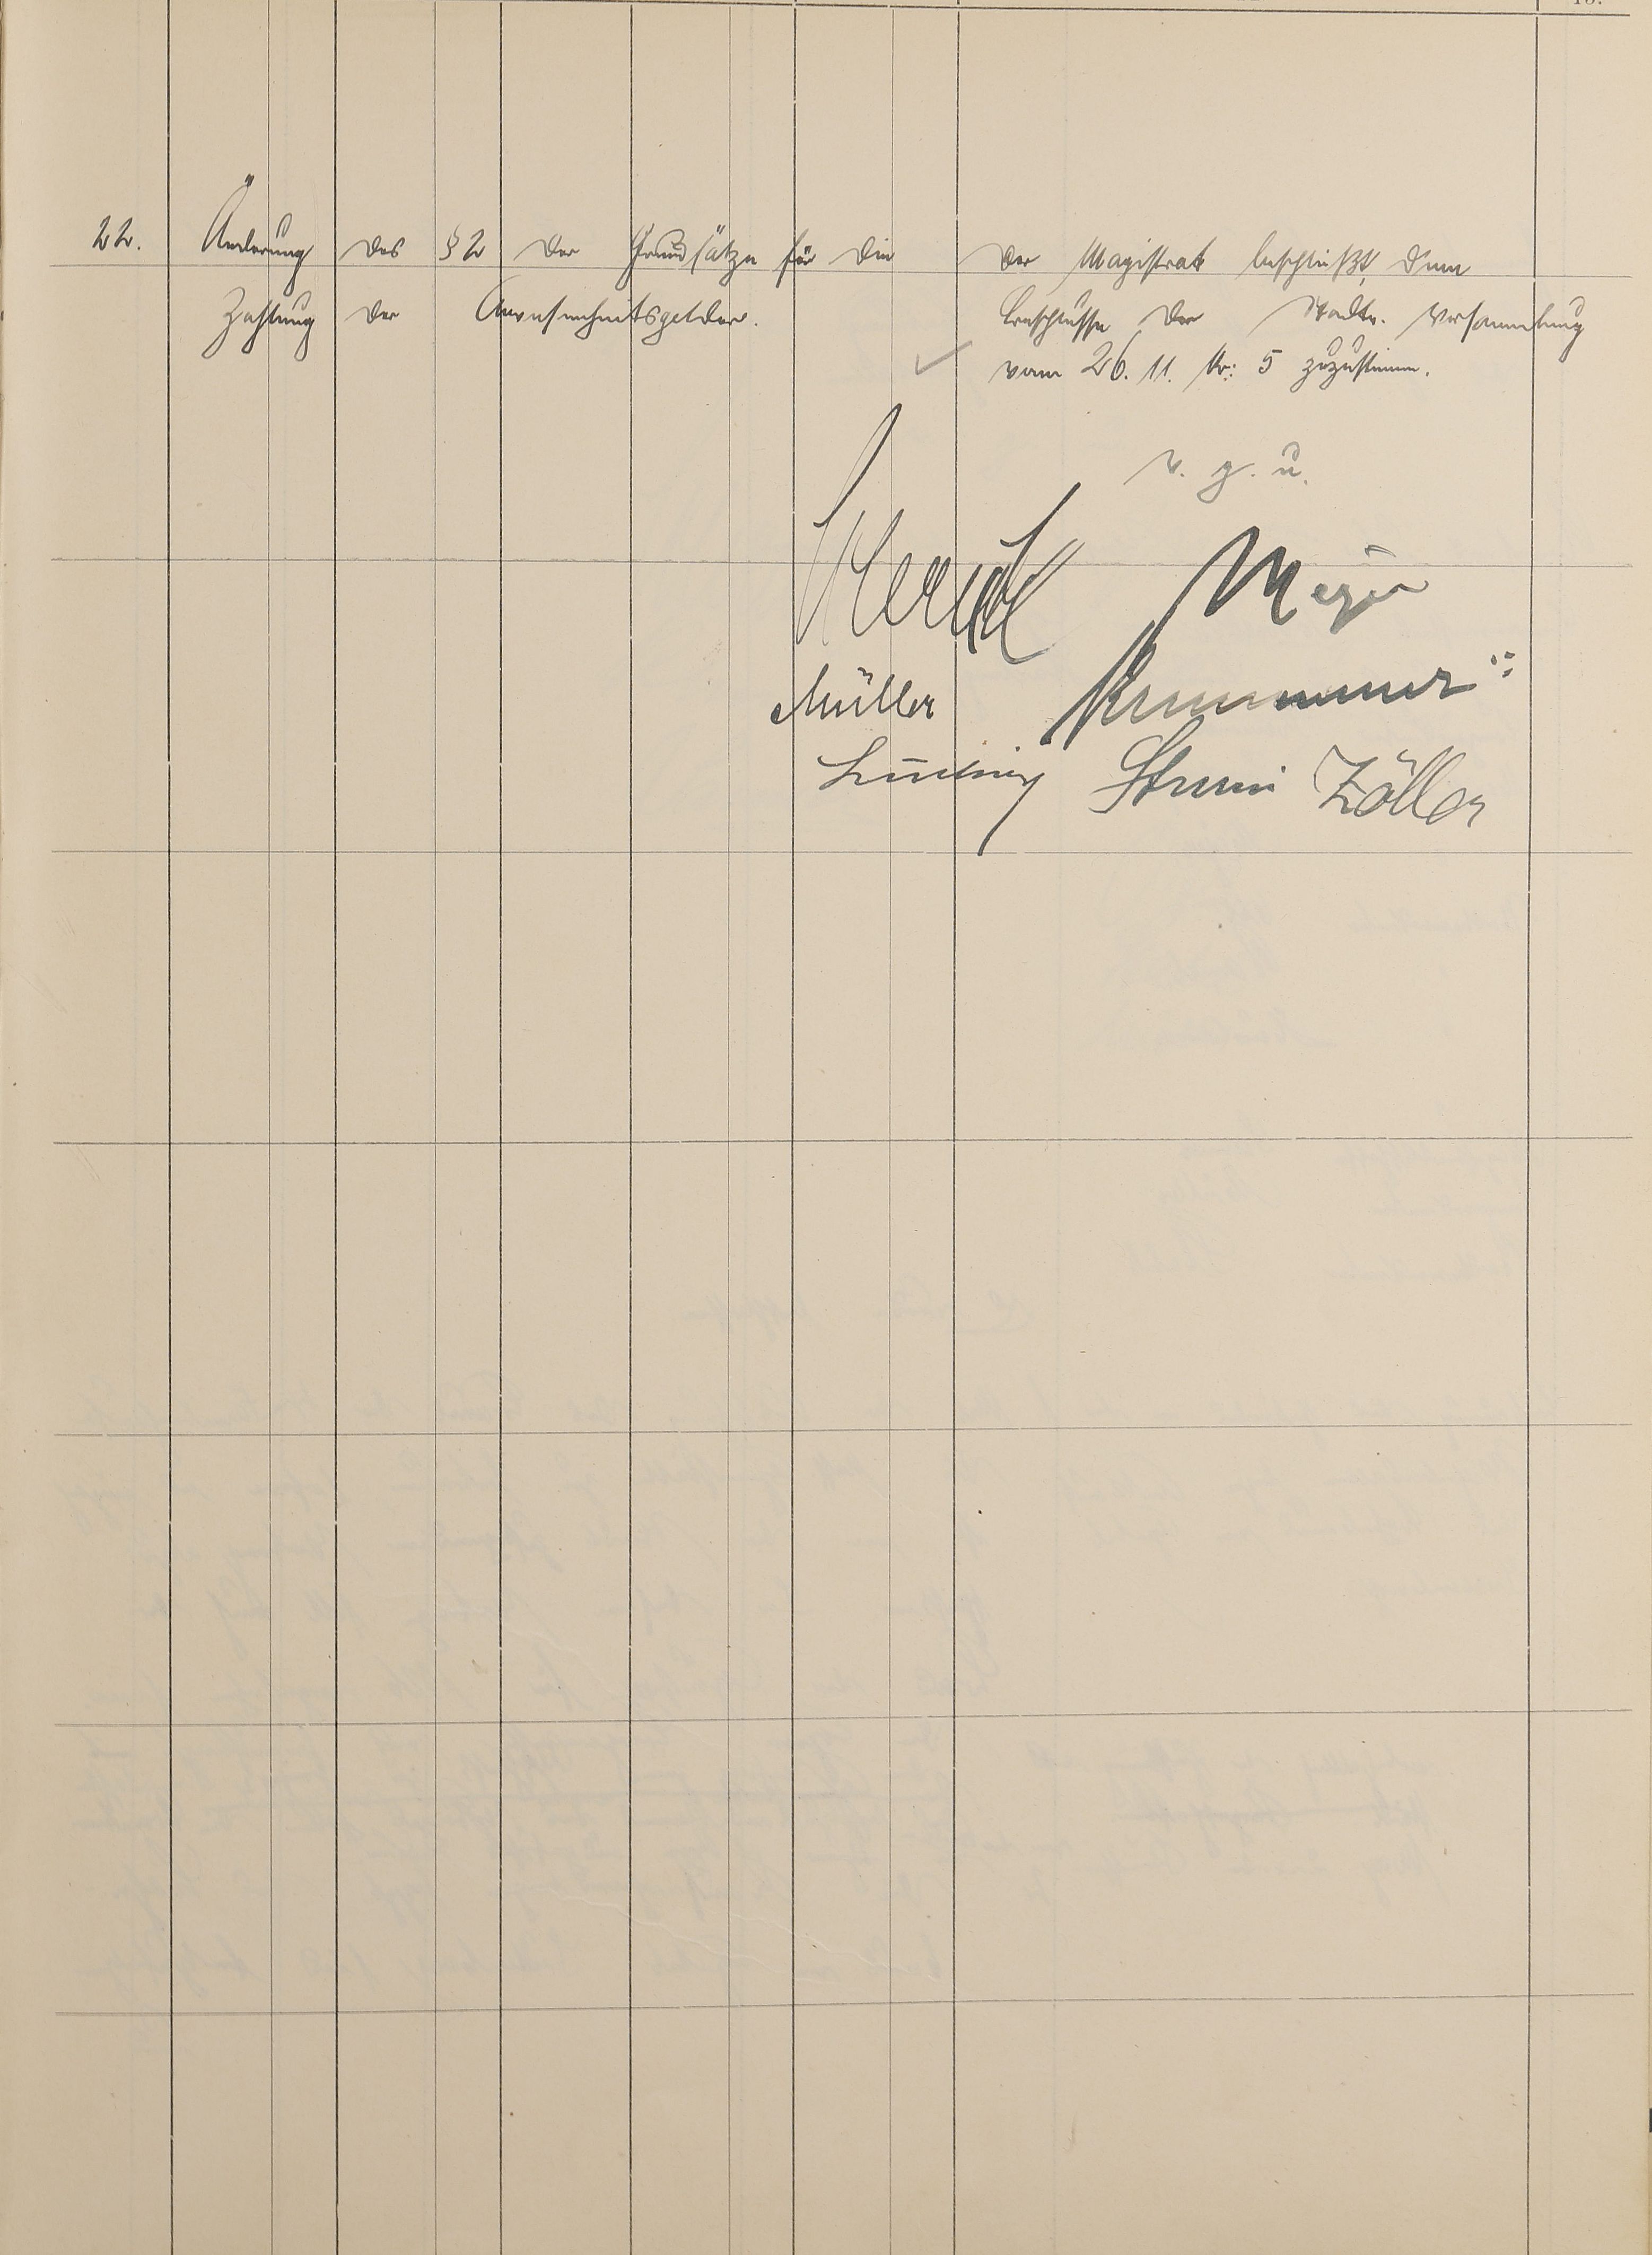 22. Änderung des § 2 der Grundsätze für die
Zahlung der Anwesenheitsgelder.
Der Magistrat beschließt, dem
Beschlusse der Stadtv. Versammlung
vom 26. 11. Nr: 5 zuzustimmen.
v. g. u.
Meyer
Müller Krummer
Ludwig Sturm Zöller